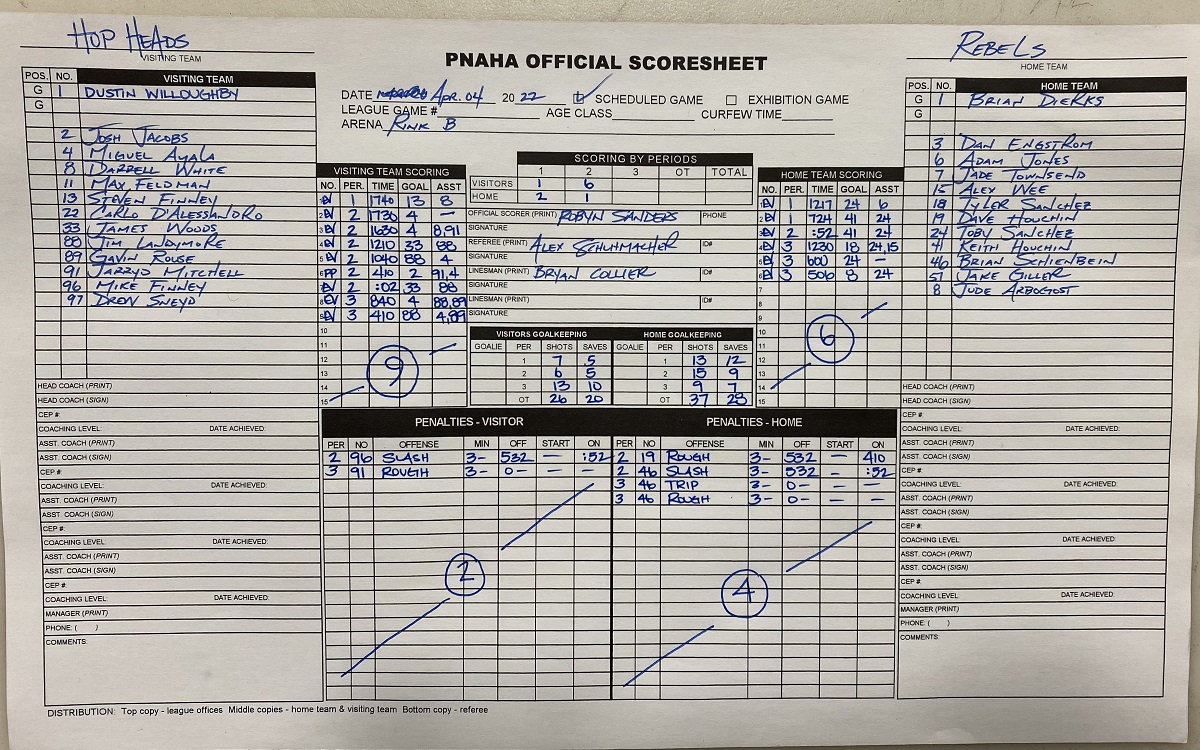 HOP HEADS
VISITING TEAM
PNAHA OFFICIAL SCORESHEET
REBELS
HOME TEAM
DATE APR. 04 2022 SCHEDULED GAME EXHIBITION GAME
LEAGUE GAME # AGE CLASS CURFEW TIME
ARENA RINK B
POS. NO. VISITING TEAM
G 1 DUSTIN WILLOUGHBY
G
2 JOSH JACOBS
4 MIGUEL AYALA
8 DARRELL WHITE
11 MAX FELDMAN
13 STEVEN FINNEY
22 CARLO D'ALESSANDRO
33 JAMES WOODS
88 JIM LANDYMORE
89 GAVIN ROUSE
91 JARRYD MITCHELL
96 MIKE FINNEY
97 DREW SNEYD
HEAD COACH (PRINT)
HEAD COACH (SIGN)
CEP #:
COACHING LEVEL: DATE ACHIEVED:
ASST. COACH (PRINT)
ASST. COACH (SIGN)
CEP #:
COACHING LEVEL: DATE ACHIEVED:
ASST. COACH (PRINT)
ASST. COACH (SIGN)
CEP #:
COACHING LEVEL: DATE ACHIEVED:
ASST. COACH (PRINT)
ASST. COACH (SIGN)
CEP #:
COACHING LEVEL: DATE ACHIEVED:
MANAGER (PRINT)
PHONE: ( )
COMMENTS:
VISITING TEAM SCORING
NO. PER. TIME GOAL ASST
1 EV 1 1740 13 8
2 EV 2 1730 4 —
3 EV 2 1630 4 8,91
4 EV 2 1210 33 88
5 EV 2 1040 88 4
6 PP 2 410 2 91,4
7 EV 2 :02 33 88
8 EV 3 840 4 88,89
9 EV 3 410 88 4,89
10
11
12
13
14
15
9
SCORING BY PERIODS
1 2 3 OT TOTAL
VISITORS 1 6
HOME 2 1
OFFICIAL SCORER (PRINT) ROBYN SANDERS PHONE
SIGNATURE
REFEREE (PRINT) ALEX SCHUHMACHER ID#
SIGNATURE
LINESMAN (PRINT) BRYAN COLLIER ID#
SIGNATURE
LINESMAN (PRINT) ID#
SIGNATURE
VISITORS GOALKEEPING HOME GOALKEEPING
GOALIE PER SHOTS SAVES GOALIE PER SHOTS SAVES
1 7 5 1 13 12
2 6 5 2 15 9
3 13 10 3 9 7
OT 26 20 OT 37 28
HOME TEAM SCORING
NO. PER. TIME GOAL ASST
1 EV 1 1217 24 6
2 EV 1 724 41 24
3 EV 2 :52 41 24
4 EV 3 1230 18 24,15
5 EV 3 600 24 —
6 EV 3 506 8 24
7
8
9
10
11
12
13
14
15
6
PENALTIES - VISITOR
PER NO OFFENSE MIN OFF START ON
2 96 SLASH 3- 532 — :52
3 91 ROUGH 3- 0- — —
2
PENALTIES - HOME
PER NO OFFENSE MIN OFF START ON
2 19 ROUGH 3- 532 — 410
2 46 SLASH 3- 532 — :52
3 46 TRIP 3- 0- — —
3 46 ROUGH 3- 0- — —
4
POS. NO. HOME TEAM
G 1 BRIAN DIERKS
G
3 DAN ENGSTROM
6 ADAM JONES
7 JADE TOWNSEND
15 ALEX WEE
18 TYLER SANCHEZ
19 DAVE HOUCHIN
24 TOBY SANCHEZ
41 KEITH HOUCHIN
46 BRIAN SCHIENBEIN
51 JAKE GILLER
8 JUDE ARBOGOST
HEAD COACH (PRINT)
HEAD COACH (SIGN)
CEP #:
COACHING LEVEL: DATE ACHIEVED:
ASST. COACH (PRINT)
ASST. COACH (SIGN)
CEP #:
COACHING LEVEL: DATE ACHIEVED:
ASST. COACH (PRINT)
ASST. COACH (SIGN)
CEP #:
COACHING LEVEL: DATE ACHIEVED:
ASST. COACH (PRINT)
ASST. COACH (SIGN)
CEP #:
COACHING LEVEL: DATE ACHIEVED:
MANAGER (PRINT)
PHONE: ( )
COMMENTS:
DISTRIBUTION: Top copy - league offices Middle copies - home team & visiting team Bottom copy - referee